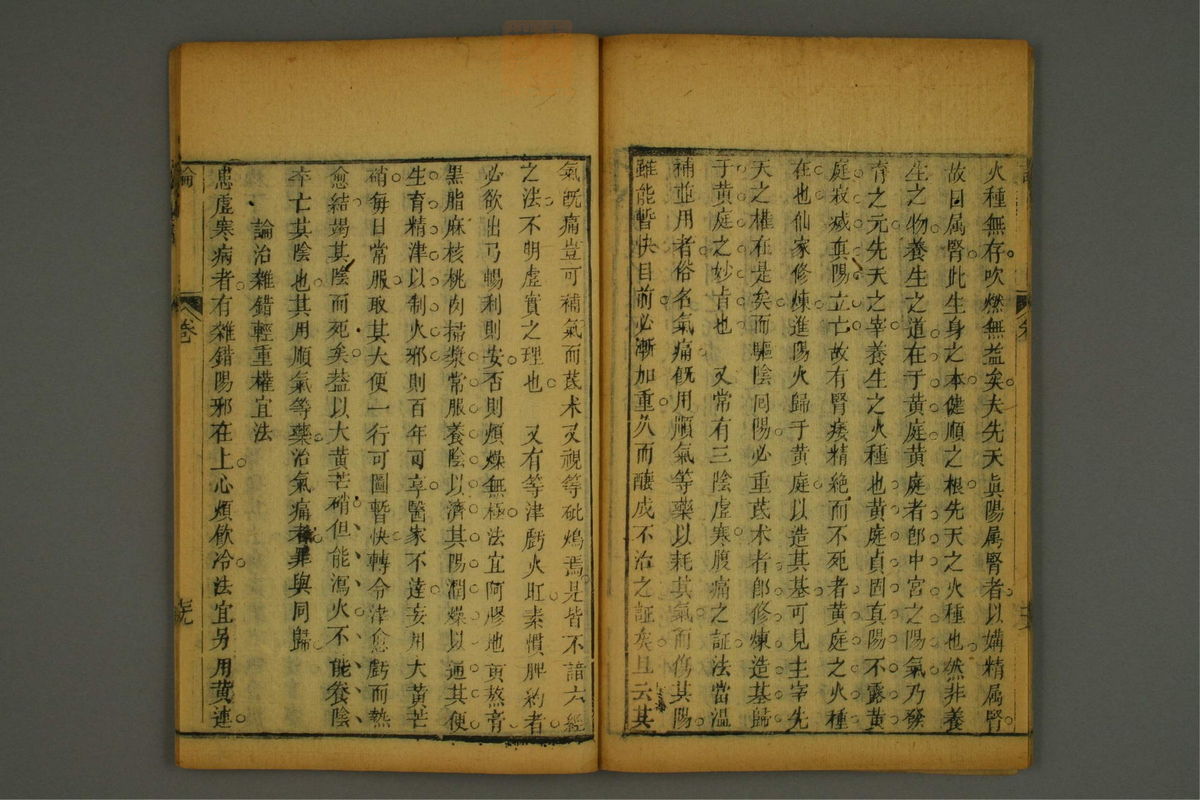 火種無存吹燃無益矣夫先天真陽属腎者以媾精属腎
故曰属腎此生身之本健順之根先天之火種也然非養
生之物養生之道在于黄庭黄庭者即中宮之陽氣乃發
育之元先天之宰養生之火種也黄庭貞固真陽不露黄
庭寂滅真陽立亡故有腎痿精絶而不死者黄庭之火種
在也仙家修煉進陽火歸于黄庭以造其基可見主宰先
天之權在是矣而驅陰囬陽必重茋术者即修煉造基歸
于黄庭之妙肯也 又常有三陰虚寒腹痛之証法當温
補並用者俗名氣痛旣用順氣等藥以耗其氣而傷其陽
雖能暫快目前必漸加重久而釀成不治之証矣且云其
氣旣痛豈可補氣而茋术又視等砒鴆焉是皆不諳六經
之法不明虚實之理也 又有等津虧火旺素慣脾約者
必欲出弓暢利則安否則煩燥無極法宜阿膠地黄熬膏
黒脂麻核桃肉掃漿常服養陰以濟其陽潤燥以通其便
生育精津以制火邪則百年可享醫家不達妄用大黄芒
硝每日常服取其大便一行可圖暫快轉令津愈虧而熱
愈結竭其陰而死矣葢以大黄芒硝但能瀉火不能養陰
卒亡其陰也其用順氣等藥治氣痛者罪與同歸
論治雜錯輕重權宜法
患虚寒病者有雜錯陽邪在上心煩飲冷法宜另用黄連
論
卷